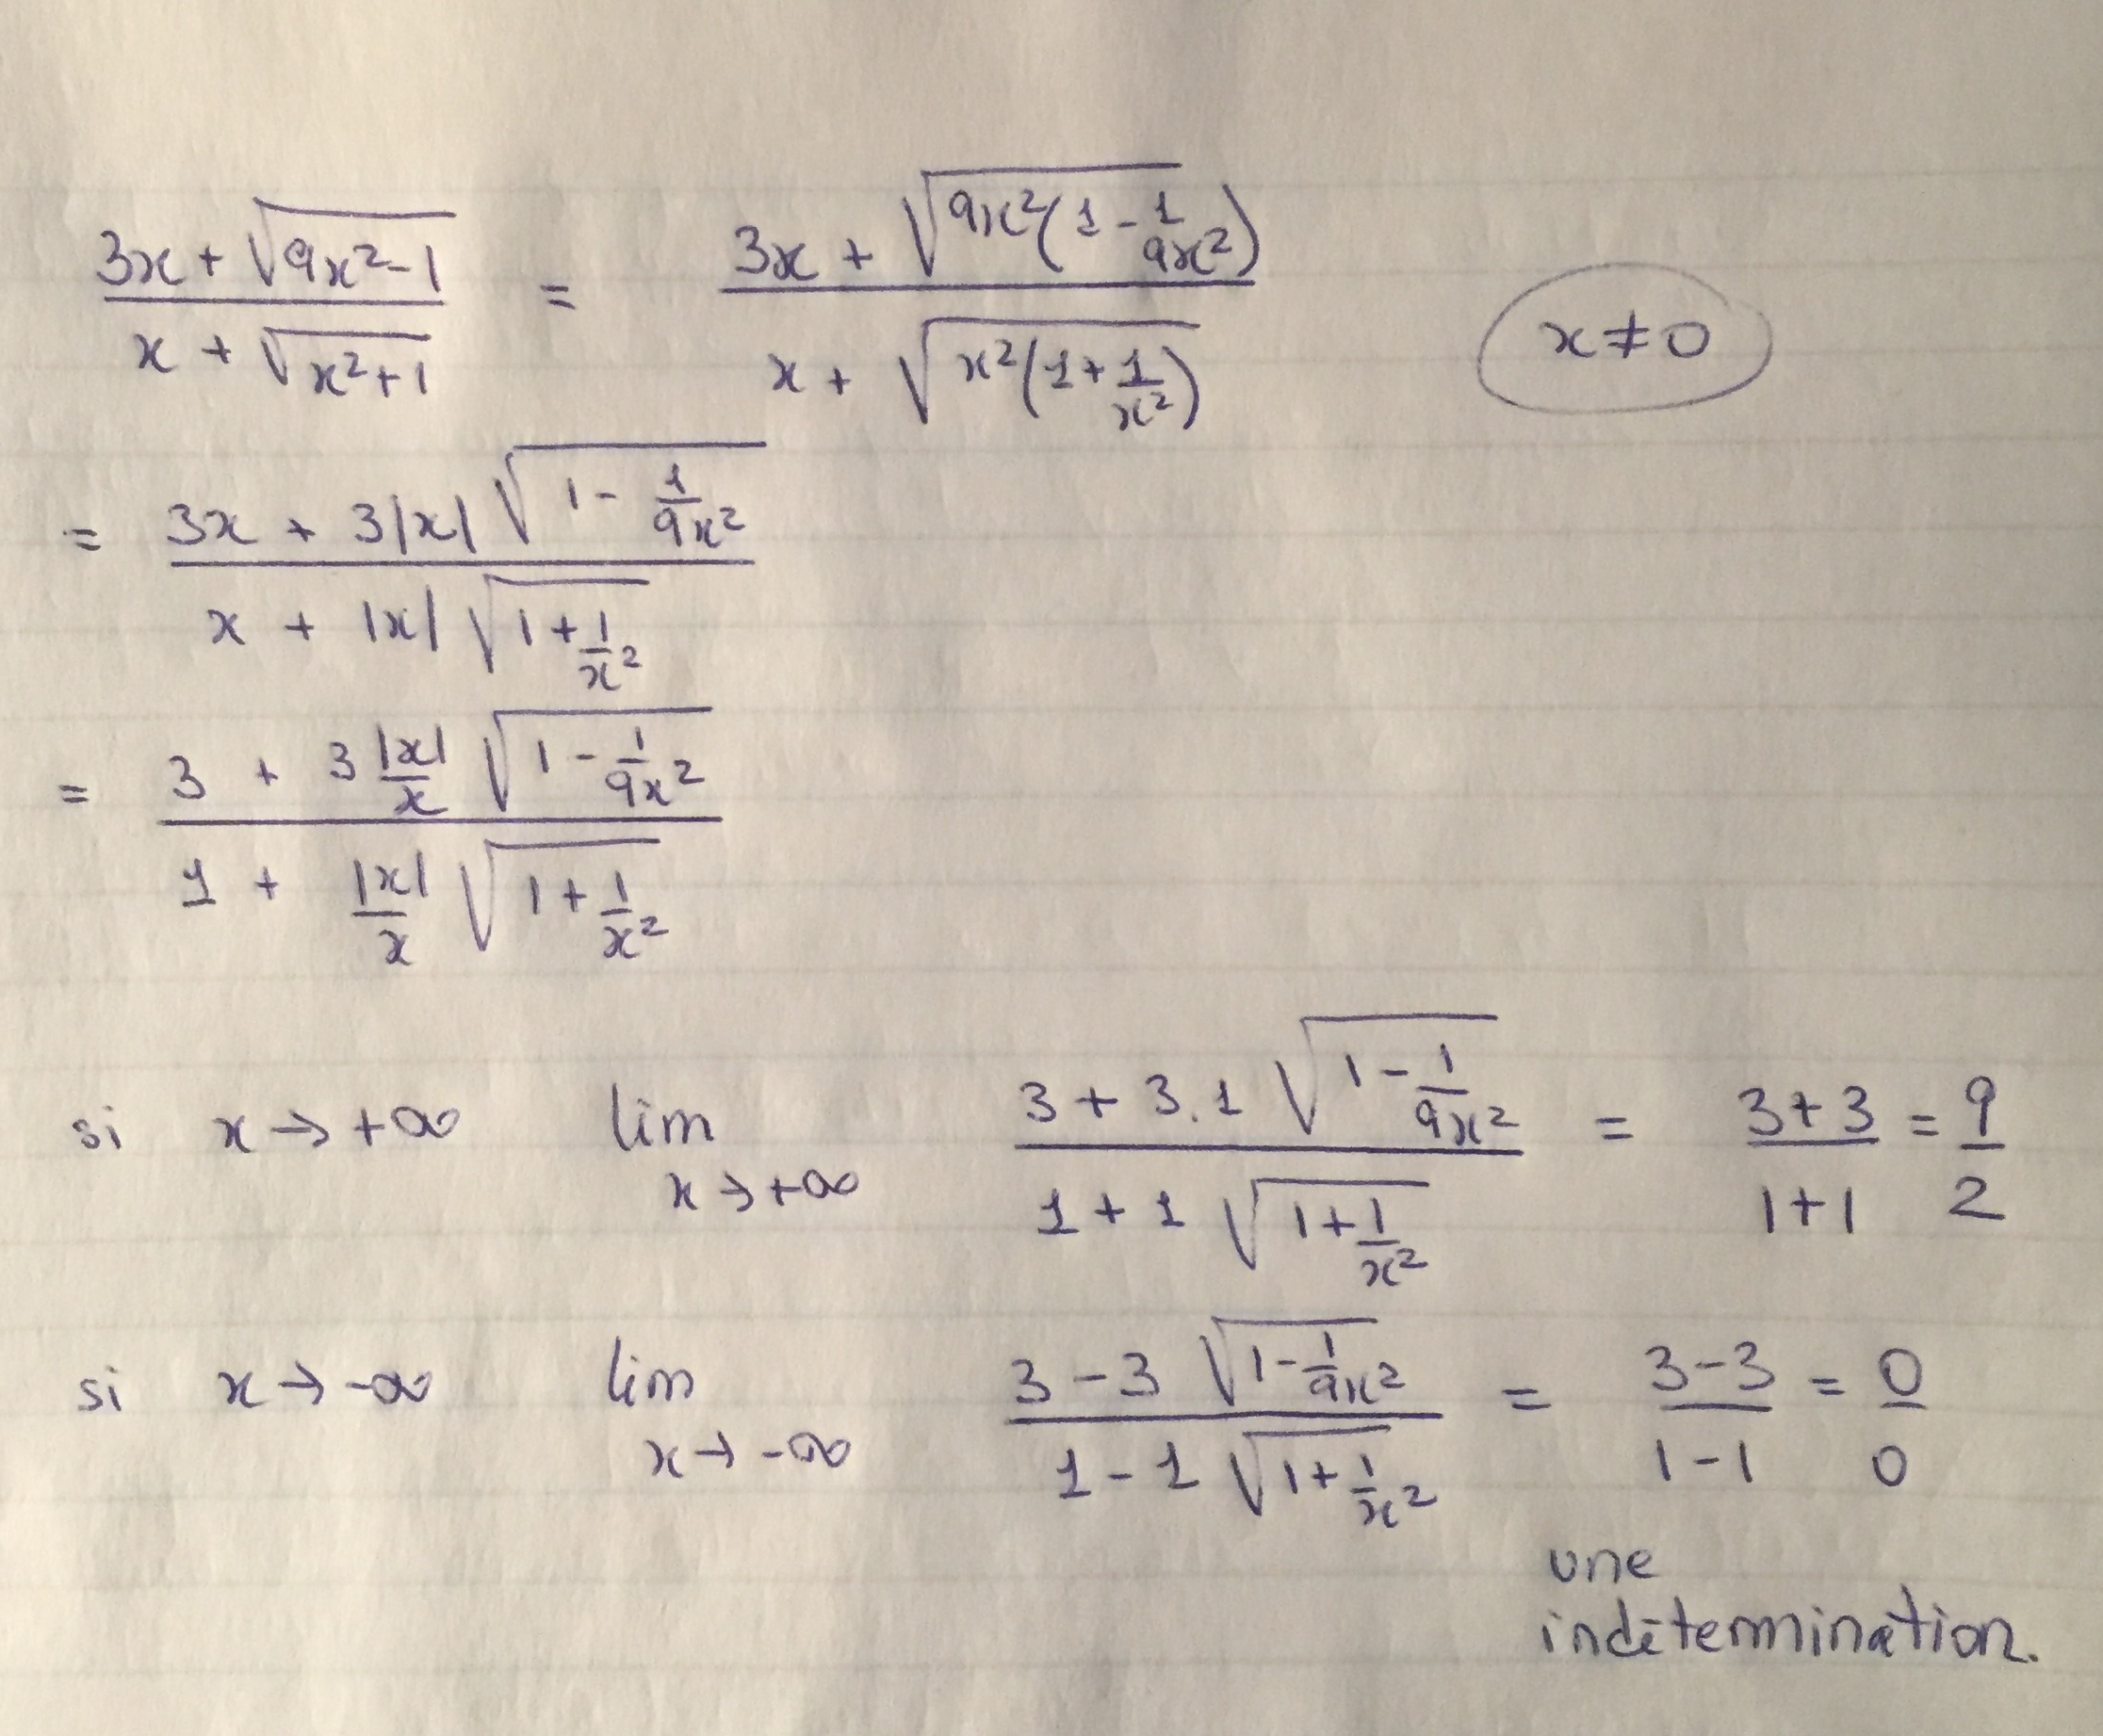 (3x + √(9x² - 1)) / (x + √(x² + 1)) = (3x + √(9x²(1 - 1/(9x²)))) / (x + √(x²(1 + 1/x²))) x ≠ 0
= (3x + 3|x| √(1 - 1/(9x²))) / (x + |x| √(1 + 1/x²))
= (3 + 3 |x|/x √(1 - 1/(9x²))) / (1 + |x|/x √(1 + 1/x²))
si x → +∞ lim x → +∞ (3 + 3.1 √(1 - 1/(9x²))) / (1 + 1 √(1 + 1/x²)) = (3 + 3)/(1 + 1) = 9/2
si x → -∞ lim x → -∞ (3 - 3 √(1 - 1/(9x²))) / (1 - 1 √(1 + 1/x²)) = (3 - 3)/(1 - 1) = 0/0
une
indétermination.